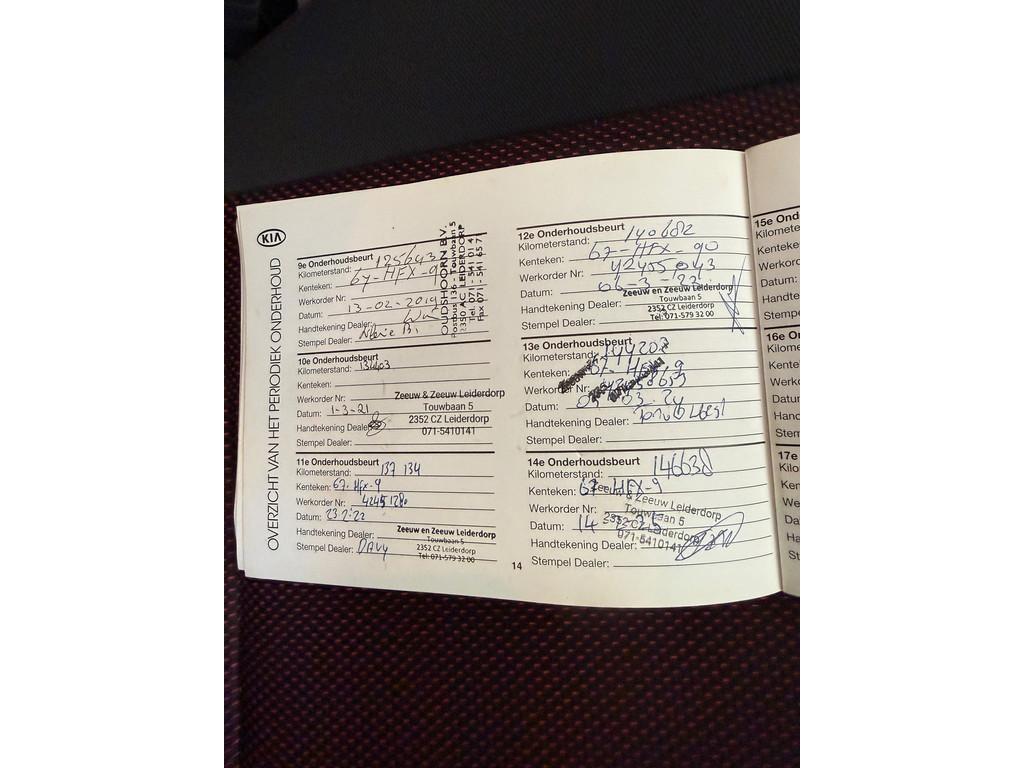 KIA
OVERZICHT VAN HET PERIODIEK ONDERHOUD
9e Onderhoudsbeurt
Kilometerstand: 125643
Kenteken: 67-HFX-9
Werkorder Nr:
Datum: 13-02-2019
Handtekening Dealer:
Stempel Dealer:
OUDSHOORN B.V.
Postbus 136 - Touwbaan 5
2350 AC LEIDERDORP
Tel. 071 - 541 01 41
Fax 071 - 541 65 7
10e Onderhoudsbeurt
Kilometerstand: 134403
Kenteken:
Werkorder Nr:
Datum: 1-3-21
Handtekening Dealer:
Stempel Dealer:
Zeeuw & Zeeuw Leiderdorp
Touwbaan 5
2352 CZ Leiderdorp
071-5410141
11e Onderhoudsbeurt
Kilometerstand: 137 134
Kenteken: 67-HFX-9
Werkorder Nr:
Datum: 23-2-22
Handtekening Dealer:
Stempel Dealer: DAVY
Zeeuw en Zeeuw Leiderdorp
Touwbaan 5
2352 CZ Leiderdorp
Tel: 071-579 32 00
12e Onderhoudsbeurt
Kilometerstand: 140682
Kenteken: 67-HFX-90
Werkorder Nr: 42455043
Datum: 06-3-23
Handtekening Dealer:
Stempel Dealer:
Zeeuw en Zeeuw Leiderdorp
Touwbaan 5
2352 CZ Leiderdorp
Tel: 071-579 32 00
13e Onderhoudsbeurt
Kilometerstand: 144207
Kenteken: 67-HFX-9
Werkorder Nr:
Datum: 03.24
Handtekening Dealer:
Stempel Dealer:
14e Onderhoudsbeurt
Kilometerstand: 146638
Kenteken: 67-HFX-9
Werkorder Nr:
Datum: 14
Handtekening Dealer:
Stempel Dealer:
Zeeuw & Zeeuw Leiderdorp
Touwbaan 5
2352 CZ Leiderdorp
071-5410141
14
15e Ond
Kilomete
Kenteke
Werkorc
Datum:
Handte
Stempe
16e On
Kilome
Kente
Werk
Datu
Hanc
Sterr
17e
Kilo
Ke
We
Da
Ha
St